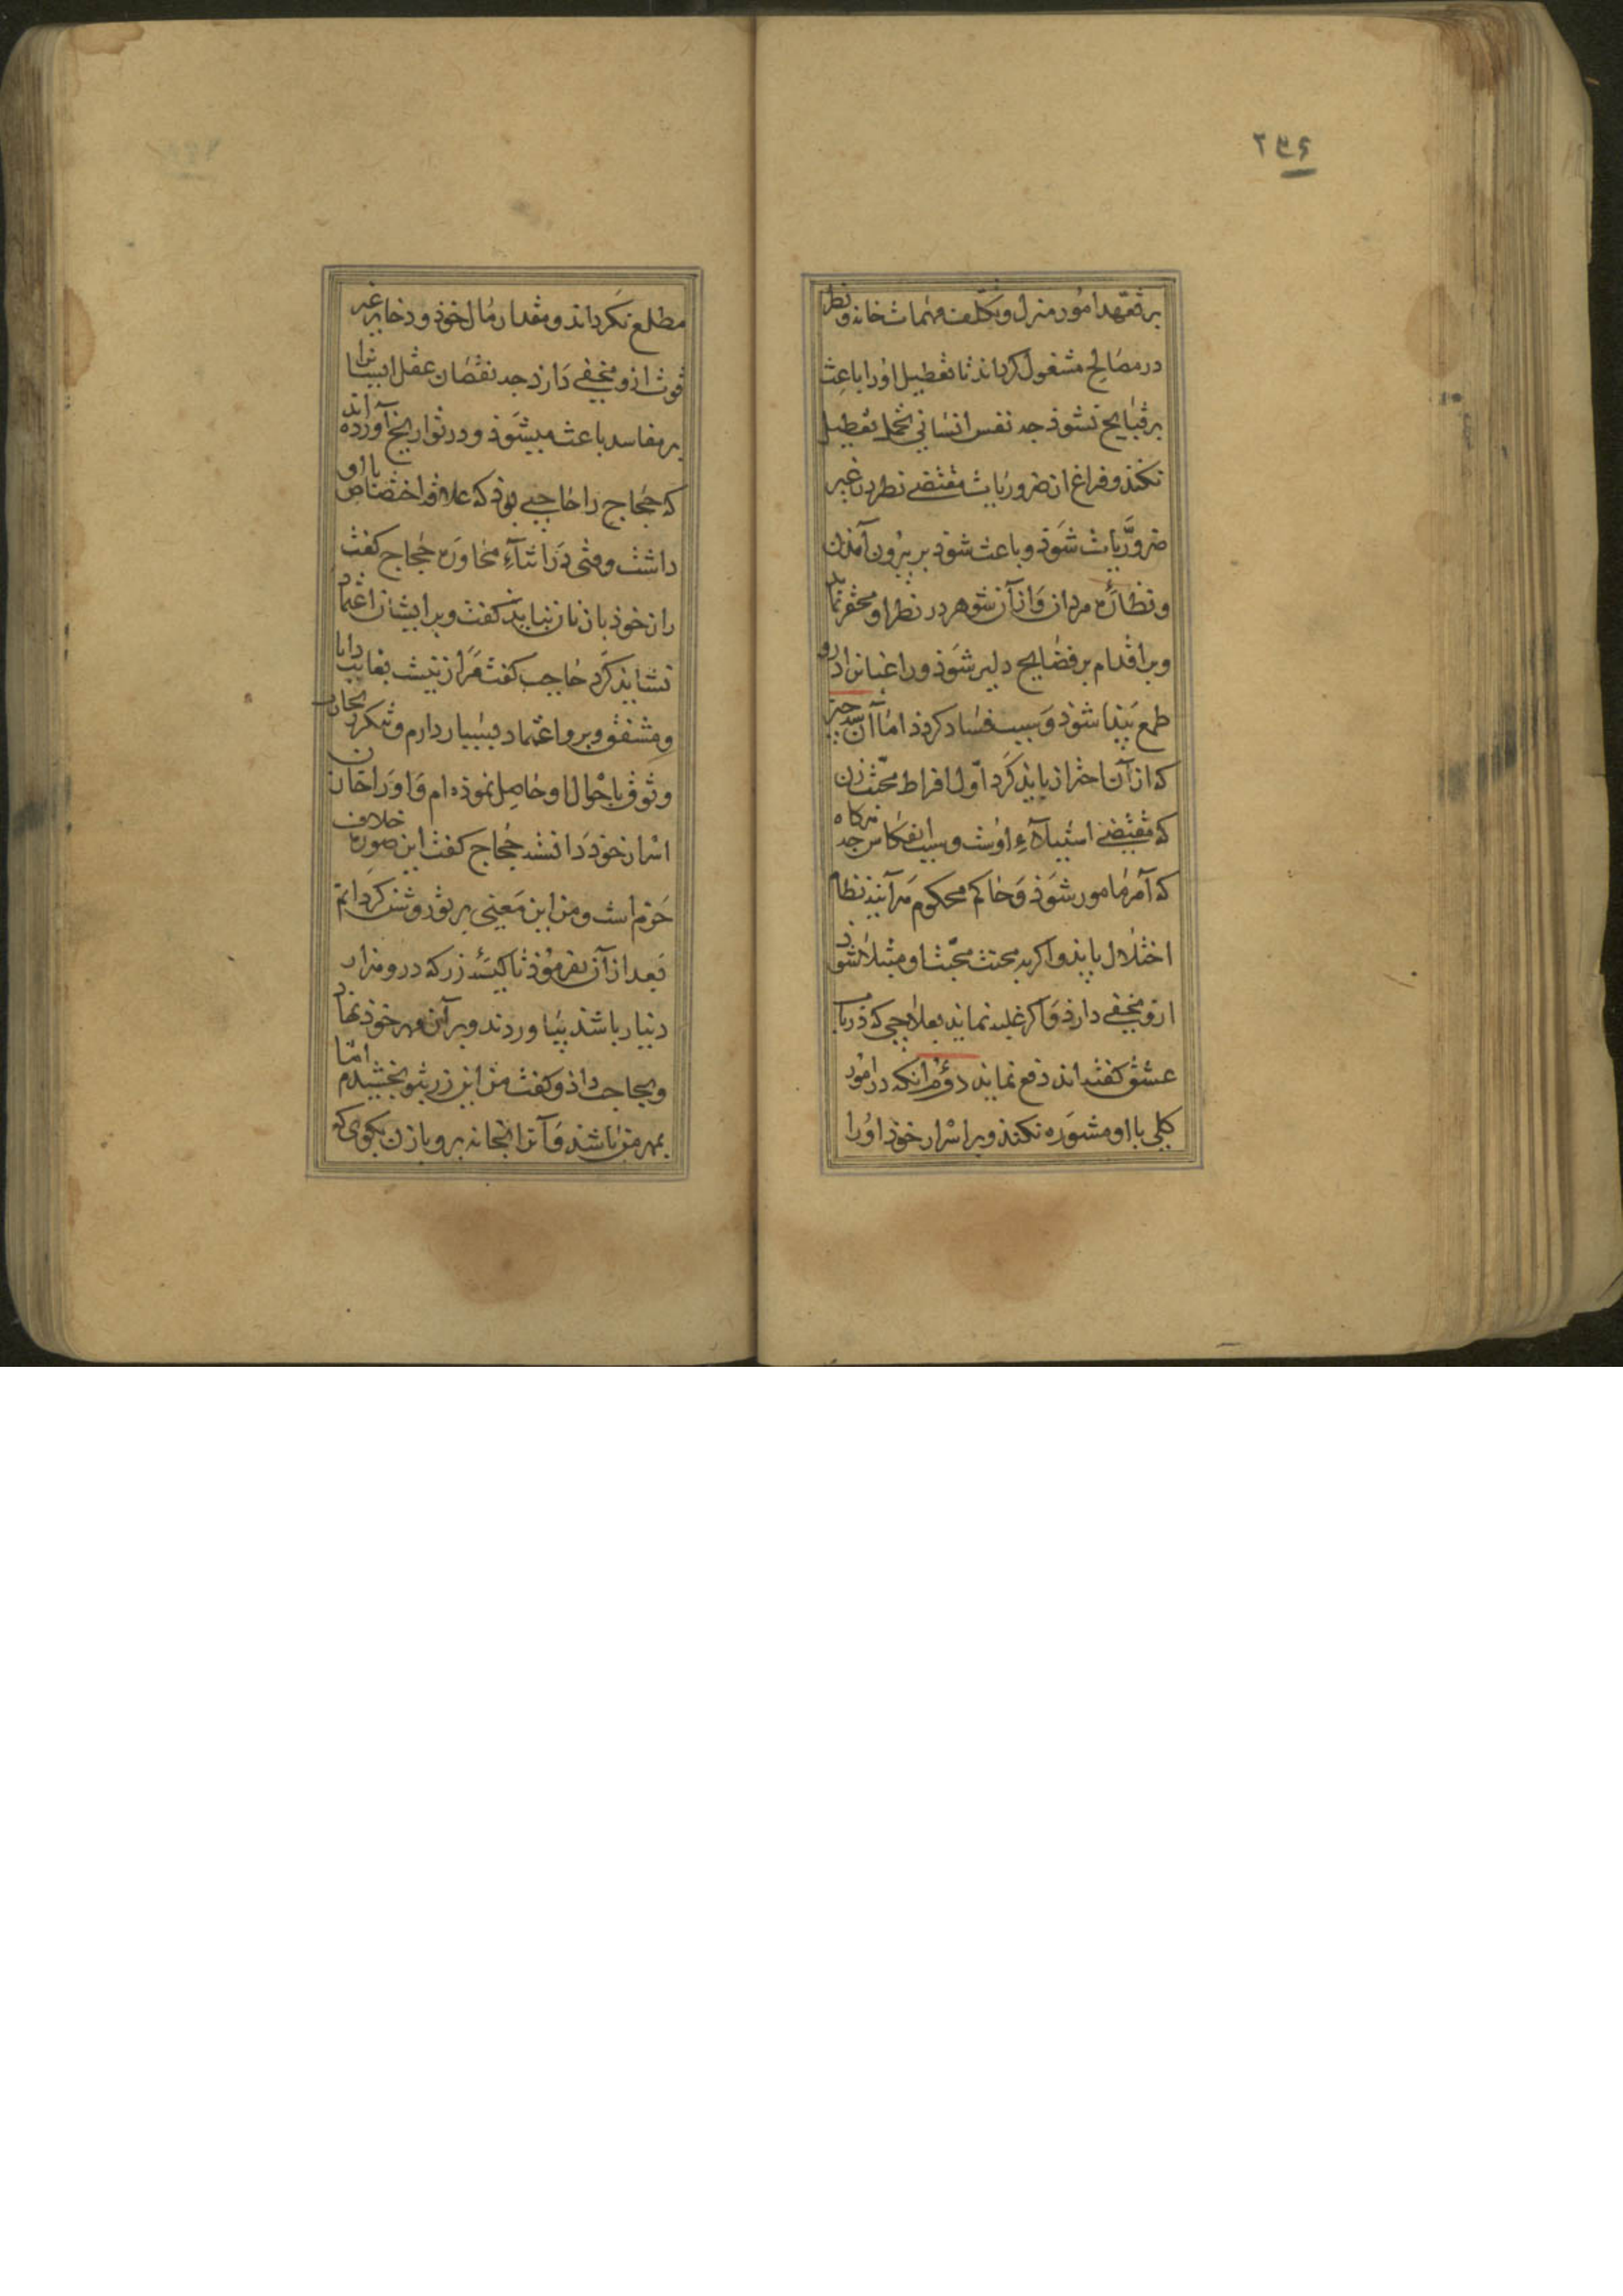 ۲۵۶
بر تعهد امور منزل و تکلف مهمات خانه و نظر
در مصالح مشغول گرداند تا تعطیل او را باعث
بر قبایح نشود چه نفس انسانی تحمل تعطیل
نکند و فراغ از ضروریات مقتضی نظر در غیر
ضروریات شود و باعث شود بر بیرون آمدن
و نظاره مردان و از آن شوهر در نظر او محقر نماید
و بر اقدام بر فضایح دلیر شود و راغبانرا درو
طمع پیدا شود و سبب فساد کردد اما آن سه چیز
که از آن احتراز باید کرد اول افراط محبت زن
که مقتضی استیلاء اوست و سبب انعکاس چه هرکاه
که آمر مامور شود و حاکم محکوم هرآینه نظام
اختلال یابد و اکر به محبت او مبتلا شود
ازو مخفی دارد و اکر غلبه نماید بعلاجی که در باب
عشق گفته اند دفع نماید دوم آنکه در امور
کلی با او مشوره نکند و بر اسرار خود او را
مطلع نکرداند و مقدار مال خود و ذخایر غیر
قوت ازو مخفی دارد چه نقصان عقل ایشانرا
بر مفاسد باعث میشود و در تواریخ آورده اند
که حجاج را حاجبی بود که علاقه اختصاص با او
داشت وقتی در اثناء محاوره حجاج کفت
راز خود با زنان نباید کفت و بر ایشان اعتماد
نشاید کرد حاجب کفت مرا زنیست بغایت دانا
و مشفق و برو اعتماد بسیار دارم و بتکرر تجارب
وثوق باحوال او حاصل نموده ام و او را خازن
اسرار خود دانسته حجاج کفت این صورت خلاف
حزم است و من این معنی بر تو روشن کردانم
بعد از آن بفرمود تا کیسه زر که درو هزار
دینار باشد بیاوردند و بر آن مهر خود نهاد
و بحاجب داد و کفت من این زر بتو بخشیدم اما
بمهر من باشد و آنرا بخانه بر و با زن بکوی که